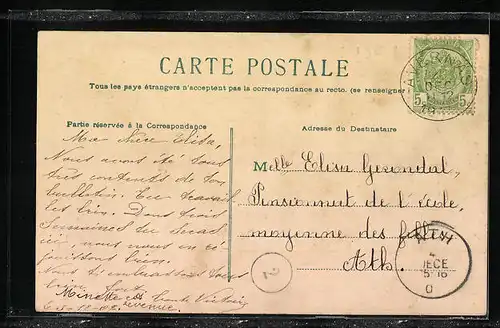 CARTE POSTALE
Tous les pays étrangers n'acceptent pas la correspondance au recto. (se renseigner
Partie réservée à la Correspondance
Ma chère Elisa,
Nous avons été tous
très contents de ton
bulletin. Tu travailles
très bien. Dans trois
semaines tu seras
ici, nous nous en ré
jouissons bien.
Nous t'embrassons tous
bien fort.
Adresse du Destinataire
Melle Elisa
Pensionnat de l'école
moyenne des filles
Ath.
5 5
DECE
15-16
2